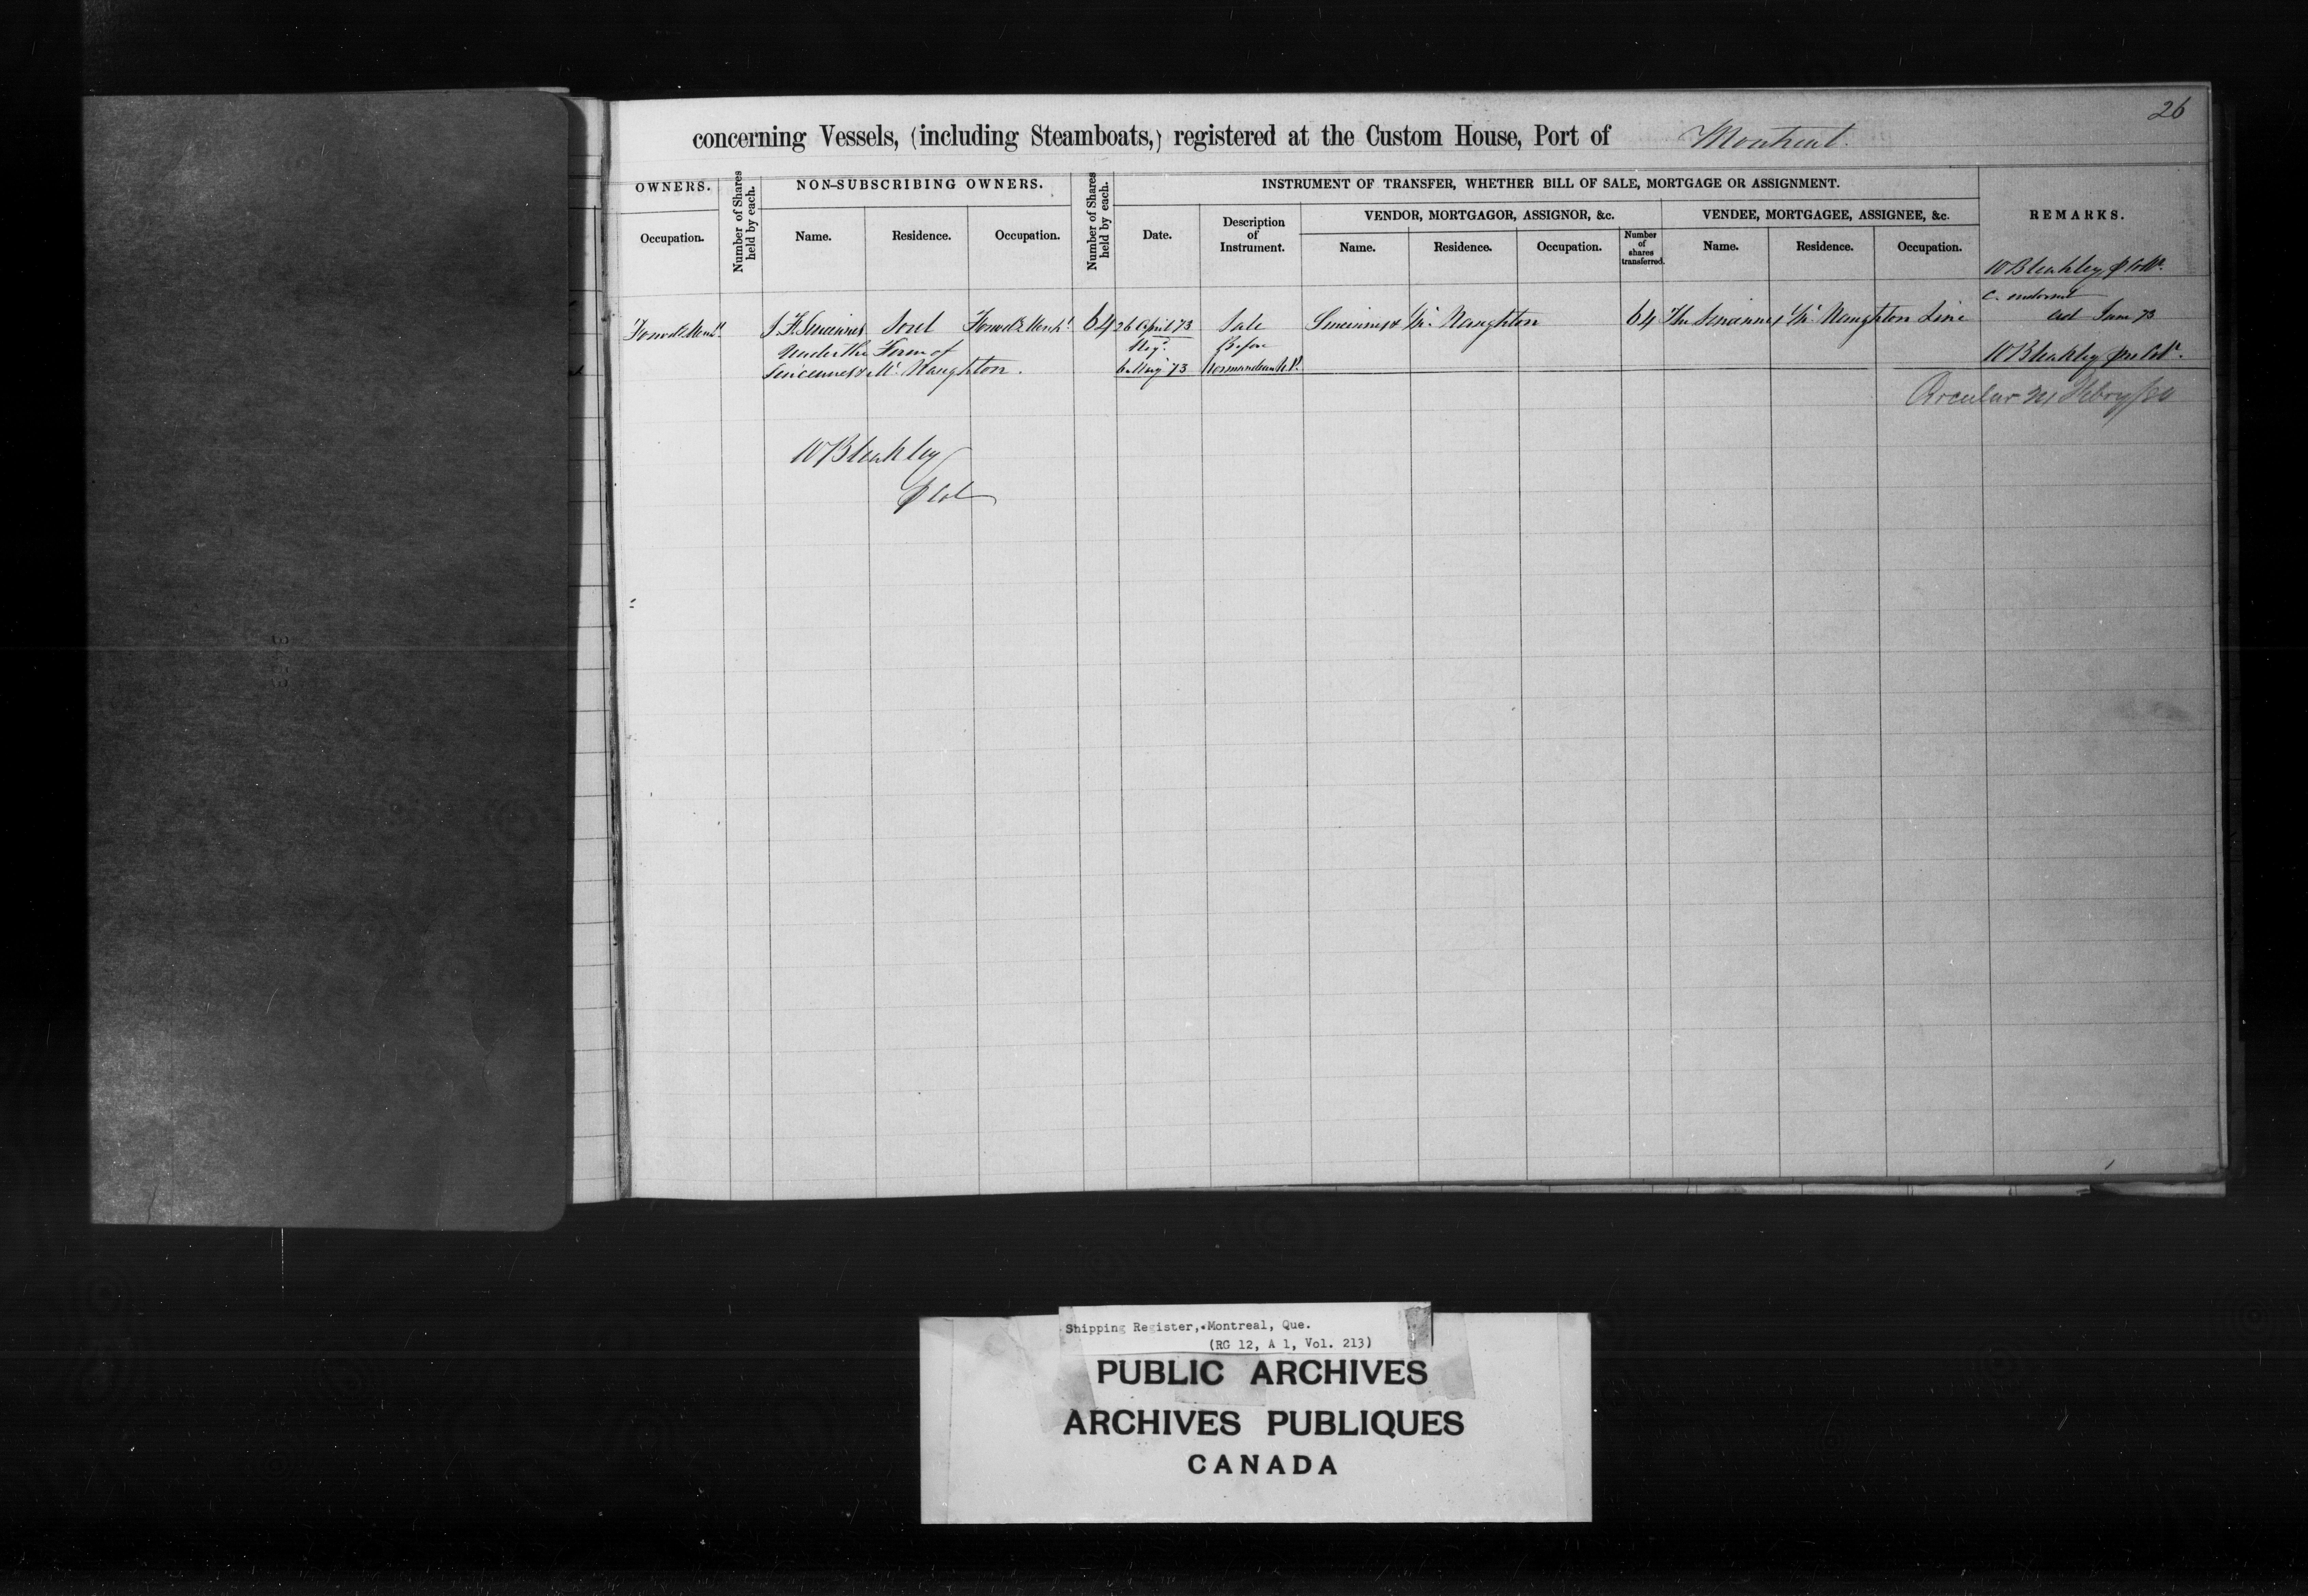 26
concerning Vessels, (including Steamboats,) registered at the Custom House, Port of Montreal.
OWNERS.
Number of Shares held by each.
NON-SUBSCRIBING OWNERS.
Number of Shares held by each.
INSTRUMENT OF TRANSFER, WHETHER BILL OF SALE, MORTGAGE OR ASSIGNMENT.
REMARKS.
VENDOR, MORTGAGOR, ASSIGNOR, &c.
VENDEE, MORTGAGEE, ASSIGNEE, &c.
Occupation.
Name.
Residence.
Occupation.
Date.
Description of Instrument.
Name.
Residence.
Occupation.
Number of shares transferred.
Name.
Residence.
Occupation.
W Bleakley
J. F. Sincennes Sorel 64 26 April 73 Sale Sincennes & Mc Naughton 64 The Sincennes Mc Naughton Line
June 73
Under the Firm of
Before
Sincennes & Mc Naughton.
6 May 73
W Bleakley
Circular
W Bleakley
Shipping Register, Montreal, Que.
(RG 12, A 1, Vol. 213)
PUBLIC ARCHIVES
ARCHIVES PUBLIQUES
CANADA